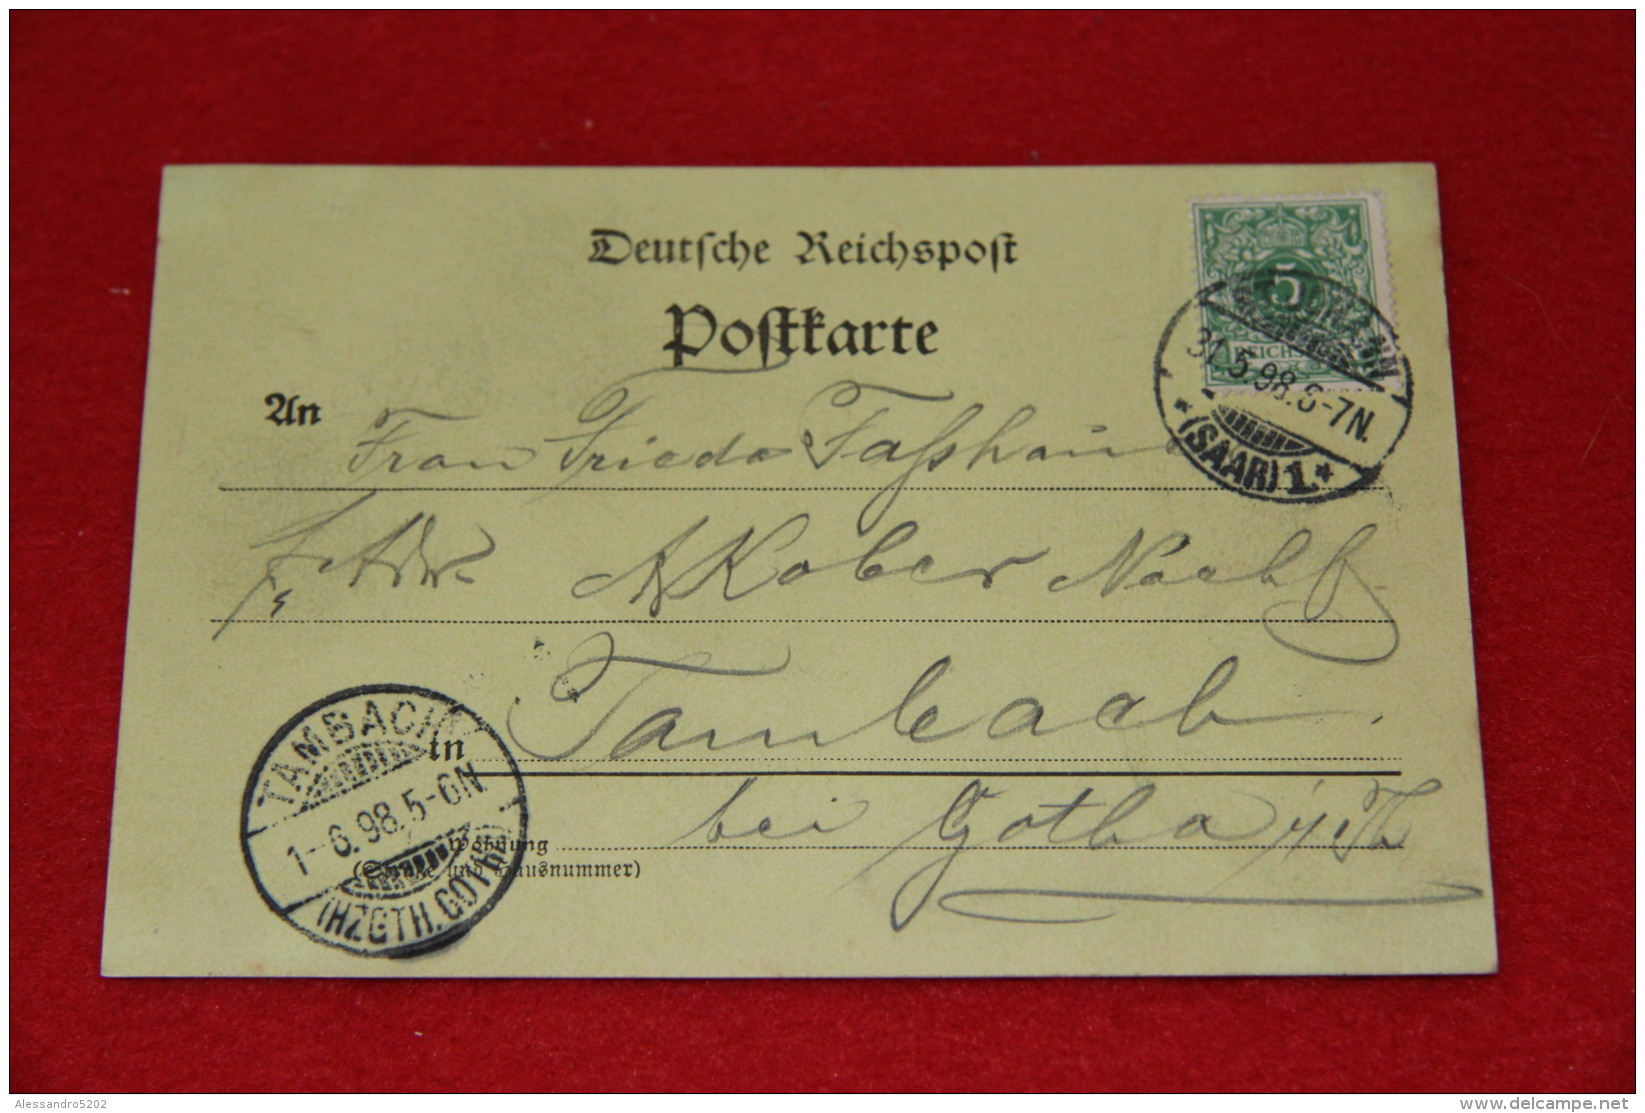 Deutsche Reichspost
Postkarte
5
REICHS
31.5.98.6-7N.
*(SAAR)1.*
An Frau Frieda Fasshau
p. Adr. A Kober Nachf
in Tambach
bei Gotha i/Th
Wohnung
(Straße und Hausnummer)
TAMBACH
1-6.98.5-6N
(HZGTH. GOTHA)
Alessandro5202
delcampe.net